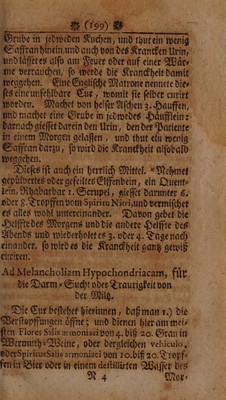 (199)
Grube in jedweden Kuchen, und thut ein wenig
Saffran hinein, und auch von des Krancken Urin,
und lässet es also am Feuer oder auf einer Wär-
me verrauchen, so werde die Kranckheit damit
weggehen. Eine Englische Matrone nennete die-
ses eine unfehlbare Cur, womit sie selber curirt
worden. Machet von heiser Aschen 3. Hauffen,
und machet eine Grube in jedwedes Häufflein:
darnach giesset darein den Urin, den der Patiente
in einem Morgen gelassen, und thut ein wenig
Saffran darzu, so wird die Kranckheit alsobald
weggehen.
Dieses ist auch ein herrlich Mittel. Nehmet
gepülvertes oder gefeiltes Elffenbein, ein Quent-
lein, Rhabarbar 1. Scrupel, giesset darunter 6.
oder 8. Tropffen vom Spiritu Nitri, und vermischet
es alles wohl untereinander. Davon gebet die
Helffte des Morgens und die andere Helffte des
Abends und wiederholet es 3. oder 4. Tage nach
einander, so wird es die Kranckheit gantz gewiß
curiren.
Ad Melancholiam Hypochondriacam, für
die Darm-Sucht oder Traurigkeit von
der Miltz.
Die Cur bestehet hierinnen, daß man 1.) die
Verstopffungen öffne; und dienen hier am mei-
sten Flores Salis armoniaci von 4. biß 20. Gran in
Wermuth-Weine, oder dergleichen vehiculo,
oder Spiritus Salis armoniaci von 10. biß 20. Tropf-
fen in Bier oder in einem destillirten Wasser des
N 4 Mor-